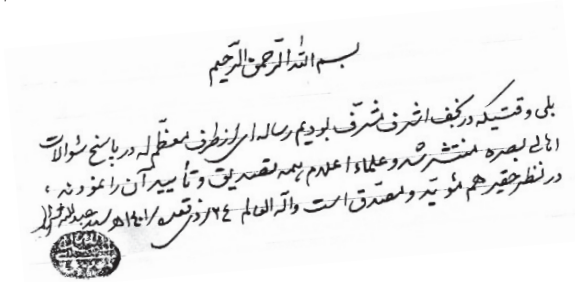 بسم الله الرّحمن الرّحیم
بلی وقتیکه در نجف اشرف مشرّف بودیم رساله ای از طرف معظّم له در پاسخ سئوالات
اهالی بصره منتشر شد و علماء اعلام همه تصدیق و تأیید آن را نمودند،
در نظر حقیر هم مؤیّد و مصدّق است والله العالم ٢٤ ذی قعده ١٤٠١ هـ سید عبدالله